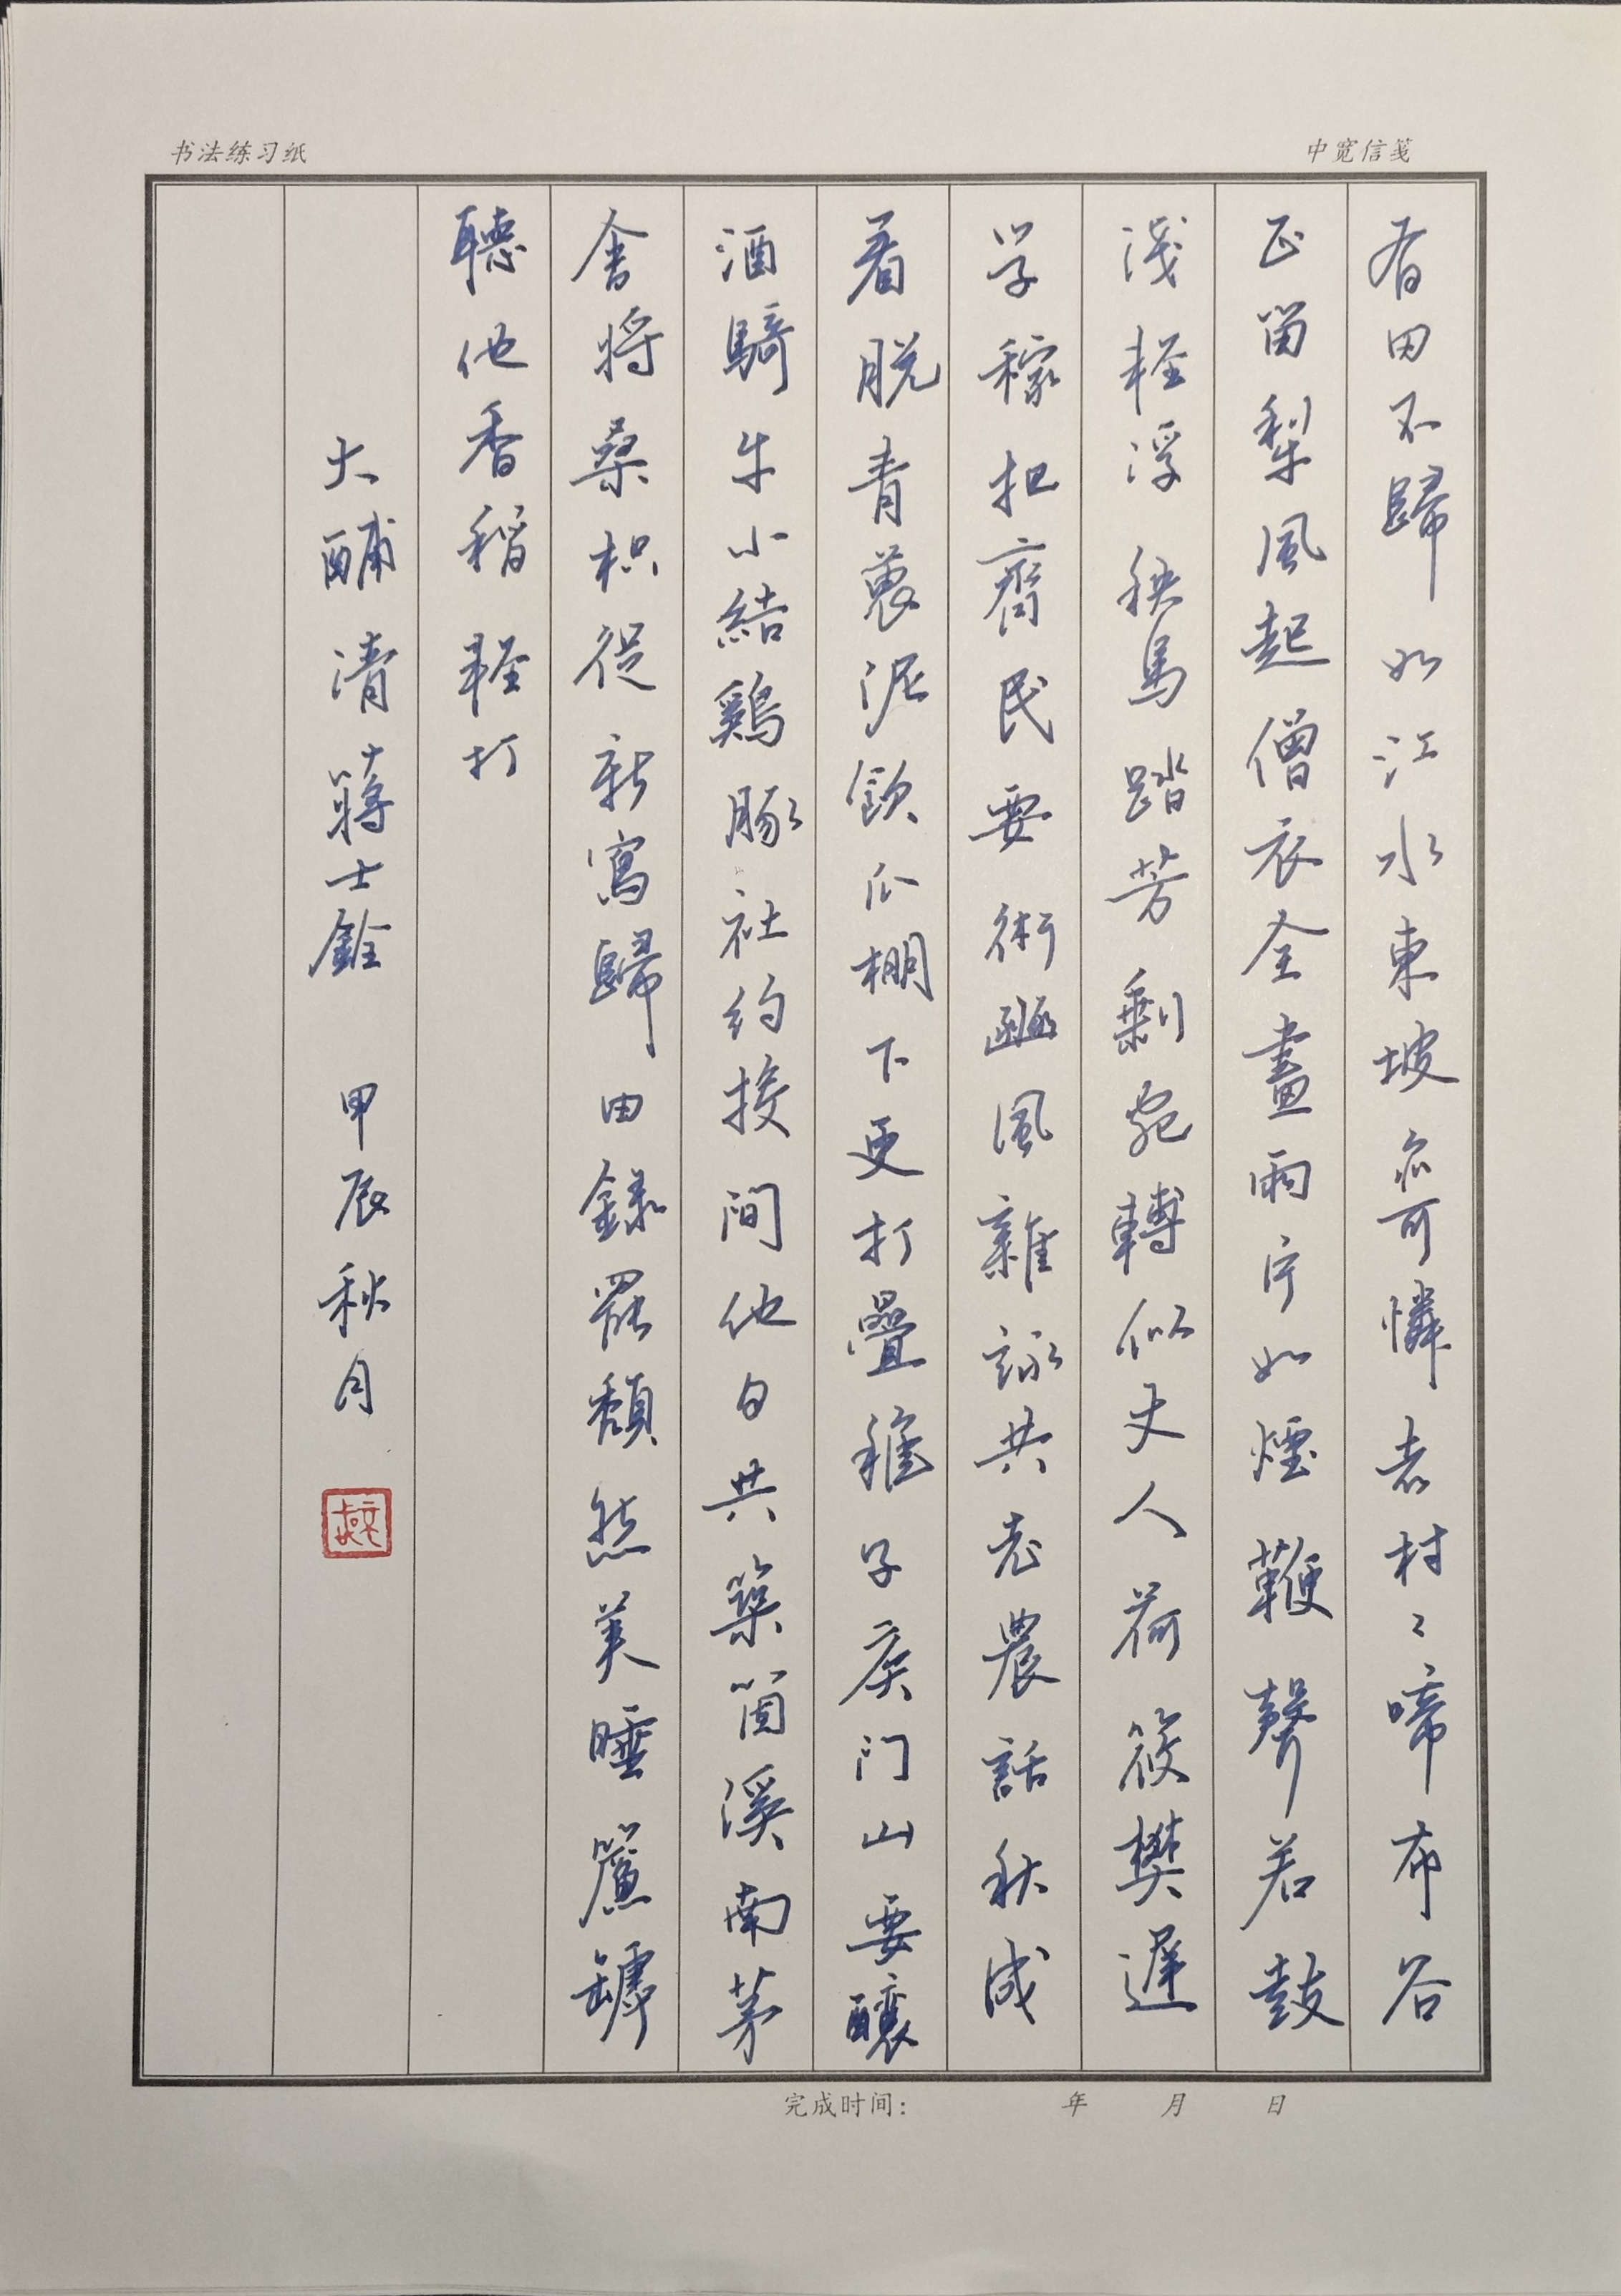 书法练习纸 中宽信笺
有田不歸如江水東坡亦可憐者村々啼布谷
正畄犁風起僧衣全畫雨片如煙鞭聲若鼓
淺輕浮秧馬踏芳剩宛轉似丈人荷筱樊遲
学稼把齋民要術豳風雜詠共老農話秋成
看脫青蓑泥飲瓜棚下更打疊稚子矦门山要釀
酒騎牛小結鷄豚社約接間他日共築箇溪南茅
舍將桑柘從新寫歸田錄罷頹然美睡簾罅
聽他香稻輕打
大酺 清 蔣士銓 甲辰秋月
完成时间： 年 月 日